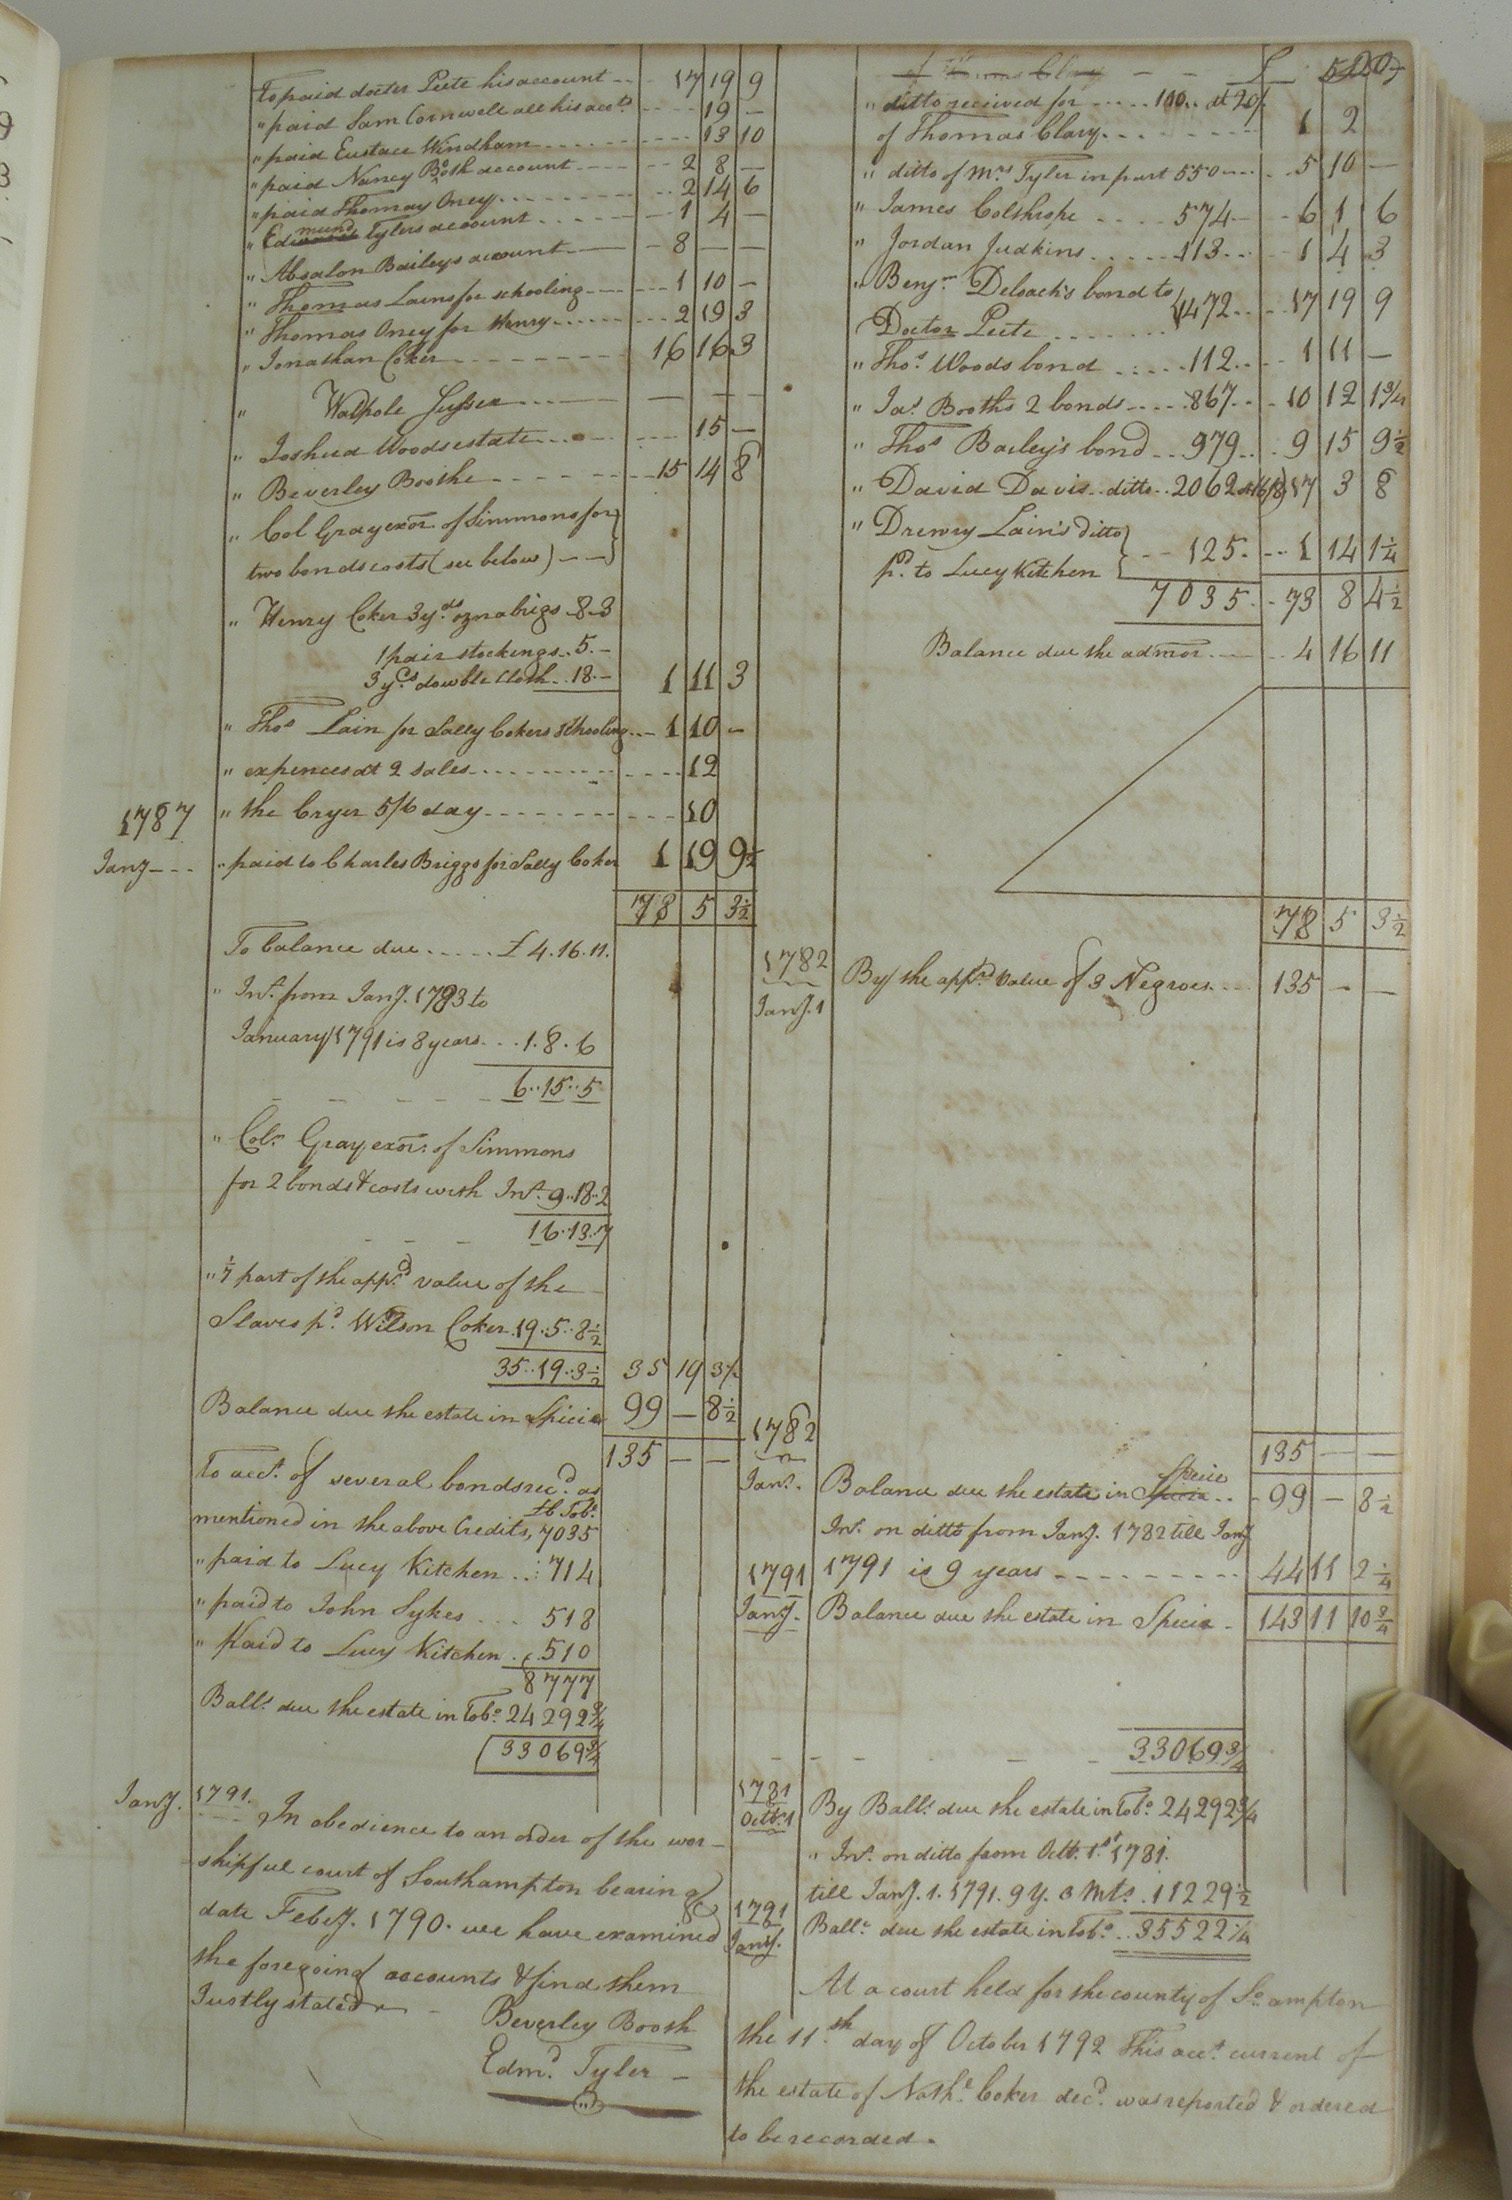 To paid docter Peete his account 17 19 9
" paid Sam Cornwell all his accts 19 —
" paid Eustace Windham 13 10
" paid Nancy Booth account 2 8 —
" paid Thomas Oney 2 14 6
" Edmund Tylers account 1 4 —
" Absalon Baileys account 8 — —
" Thomas Lains for schooling 1 10 —
" Thomas Oney for Henry 2 19 3
" Jonathan Coker 16 16 3
" Walpole Jussex — — —
" Joshua Woods estate 15 —
" Beverley Boothe 15 14 8
" Col Gray exor. of Simmons for
two bonds costs (see below)
" Henry Coker 3 yds oznabrigs 8.3
1 pair stockings 5.—
3 yds double cloth 18.— 1 11 3
" Thos Lain for Sally Cokers schooling 1 10 —
" expences at 2 sales 12
1787 " the Cryer 5/ ⅌ day 10
Jany " paid to Charles Briggs for Sally Coker 1 19 9½
78 5 3½
To balance due £ 4.16.11.
" Int. from Jany. 1783 to
January 1791 is 8 years 1.8.6
6..15..5
" Colo. Gray exor. of Simmons
for 2 bonds & costs with Int. 9..18..2
16..13..7
" 1/7 part of the appd value of the
Slaves pd. Wilson Coker 19..5..8½
35..19..3½ 35 19 3½
Balance due the estate in Specie 99 — 8½
135 — —
To acct. of several bonds recd. as
lb Tobo.
mentioned in the above Credits, 7035
" paid to Lucy Kitchen 714
" paid to John Sykes 518
" Paid to Lucy Kitchen 510
8777
Balle. due the estate in Tobo. 24292¾
33069¾
Jany. 1791. In obedience to an order of the wor-
shipful court of Southampton bearing
date Feby. 1790. we have examined
the foregoing accounts & find them
Justly stated
Beverley Booth
Edmd. Tyler
of Thomas Clary £ 5 20
" ditto received for 110 at 20/
of Thomas Clary 1 2
" ditto of Mrs Tyler in part 550 5 10 —
" James Colthrope 574 6 1 6
" Jordan Judkins 113 1 4 3
" Benjn. Deloach's bond to
Doctor Peete 1472 17 19 9
" Thos. Woods bond 112 1 11 —
" Jas. Booths 2 bonds 867 10 12 1¾
" Thos Bailey's bond 979 9 15 9½
" David Davis ditto 2062 at 16/8 17 3 8
" Drewry Lain's ditto
pd. to Lucy Kitchen 125 1 14 1¼
7035 73 8 4½
Balance due the admor. 4 16 11
78 5 3½
1782
Jany. 1 By the appd value of 3 Negroes 135 — —
135 — —
1782
Jany. Balance due the estate in Specie Specie 99 — 8½
Int. on ditto from Jany. 1782 till Jany
1791 is 9 years 44 11 2¼
1791
Jany. Balance due the estate in Specie 143 11 10¾
33069¾
1781
Octbr. 1 By Balle. due the estate in Tobo. 24292¾
" Int. on ditto from Octt. 1st 1781.
till Jany. 1. 1791. 9 y. 3 Mts. 11229½
1791
Jany. Balle. due the estate in Tobo. 35522¼
At a court held for the county of So. ampton
the 11th day of October 1792 This acct. current of
the estate of Nathl. Coker decd. was reported & ordered
to be recorded.